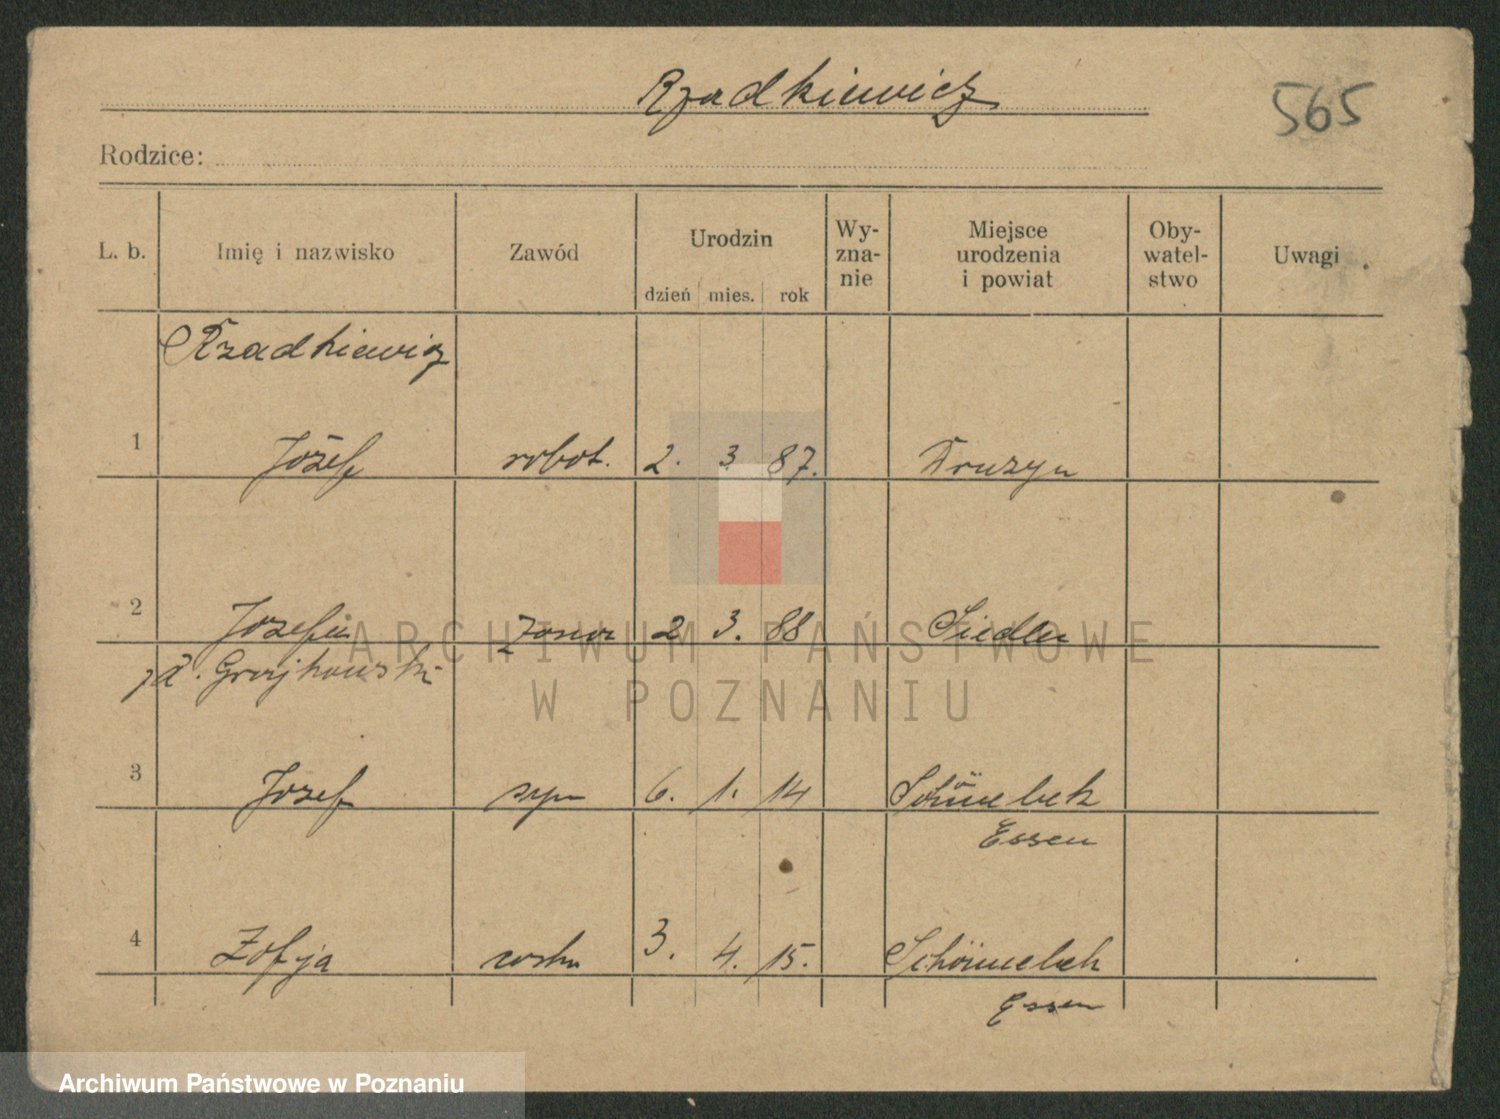 Rzadkiewicz
565
Rodzice:
L. b. Imię i nazwisko Zawód Urodzin dzień mies. rok Wy-zna-nie Miejsce urodzenia i powiat Oby-watel-stwo Uwagi
Rzadkiewicz
1 Józef robot. 2. 3 87. Druzyn
2 Jozefa żona 2 3. 88 Siedlec
3 Jozef syn 6. 1. 14 Schönnebek
Essen
4 Zofja córka 3. 4. 15. Schönnebeck
Essen
ARCHIWUM PAŃSTWOWE
W POZNANIU
Archiwum Państwowe w Poznaniu